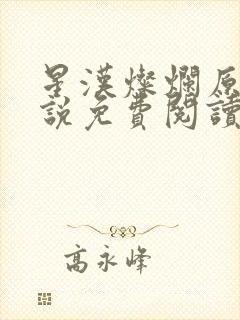 星漢燦爛原
說免費閱讀
高永峰